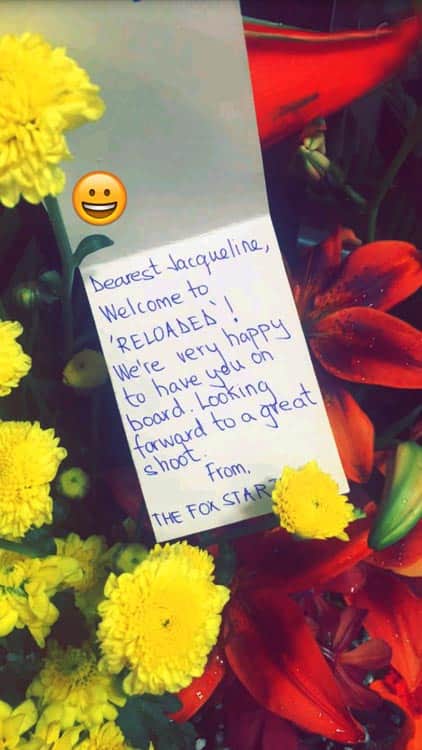 Dearest Jacqueline,
Welcome to
'RELOADED'!
We're very happy
to have you on
board. Looking
forward to a great
shoot.
From,
THE FOX STAR